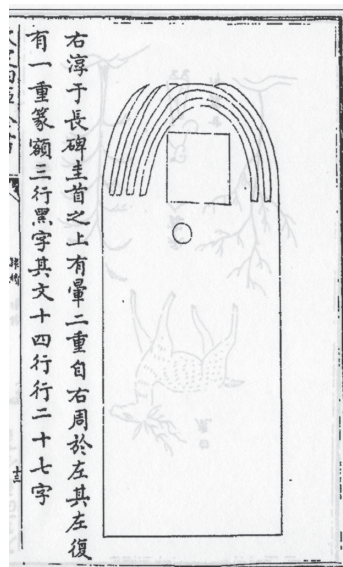 右淳于長碑圭首之上有暈二重自右周於左其左復
有一重篆額三行黑字其文十四行行二十七字